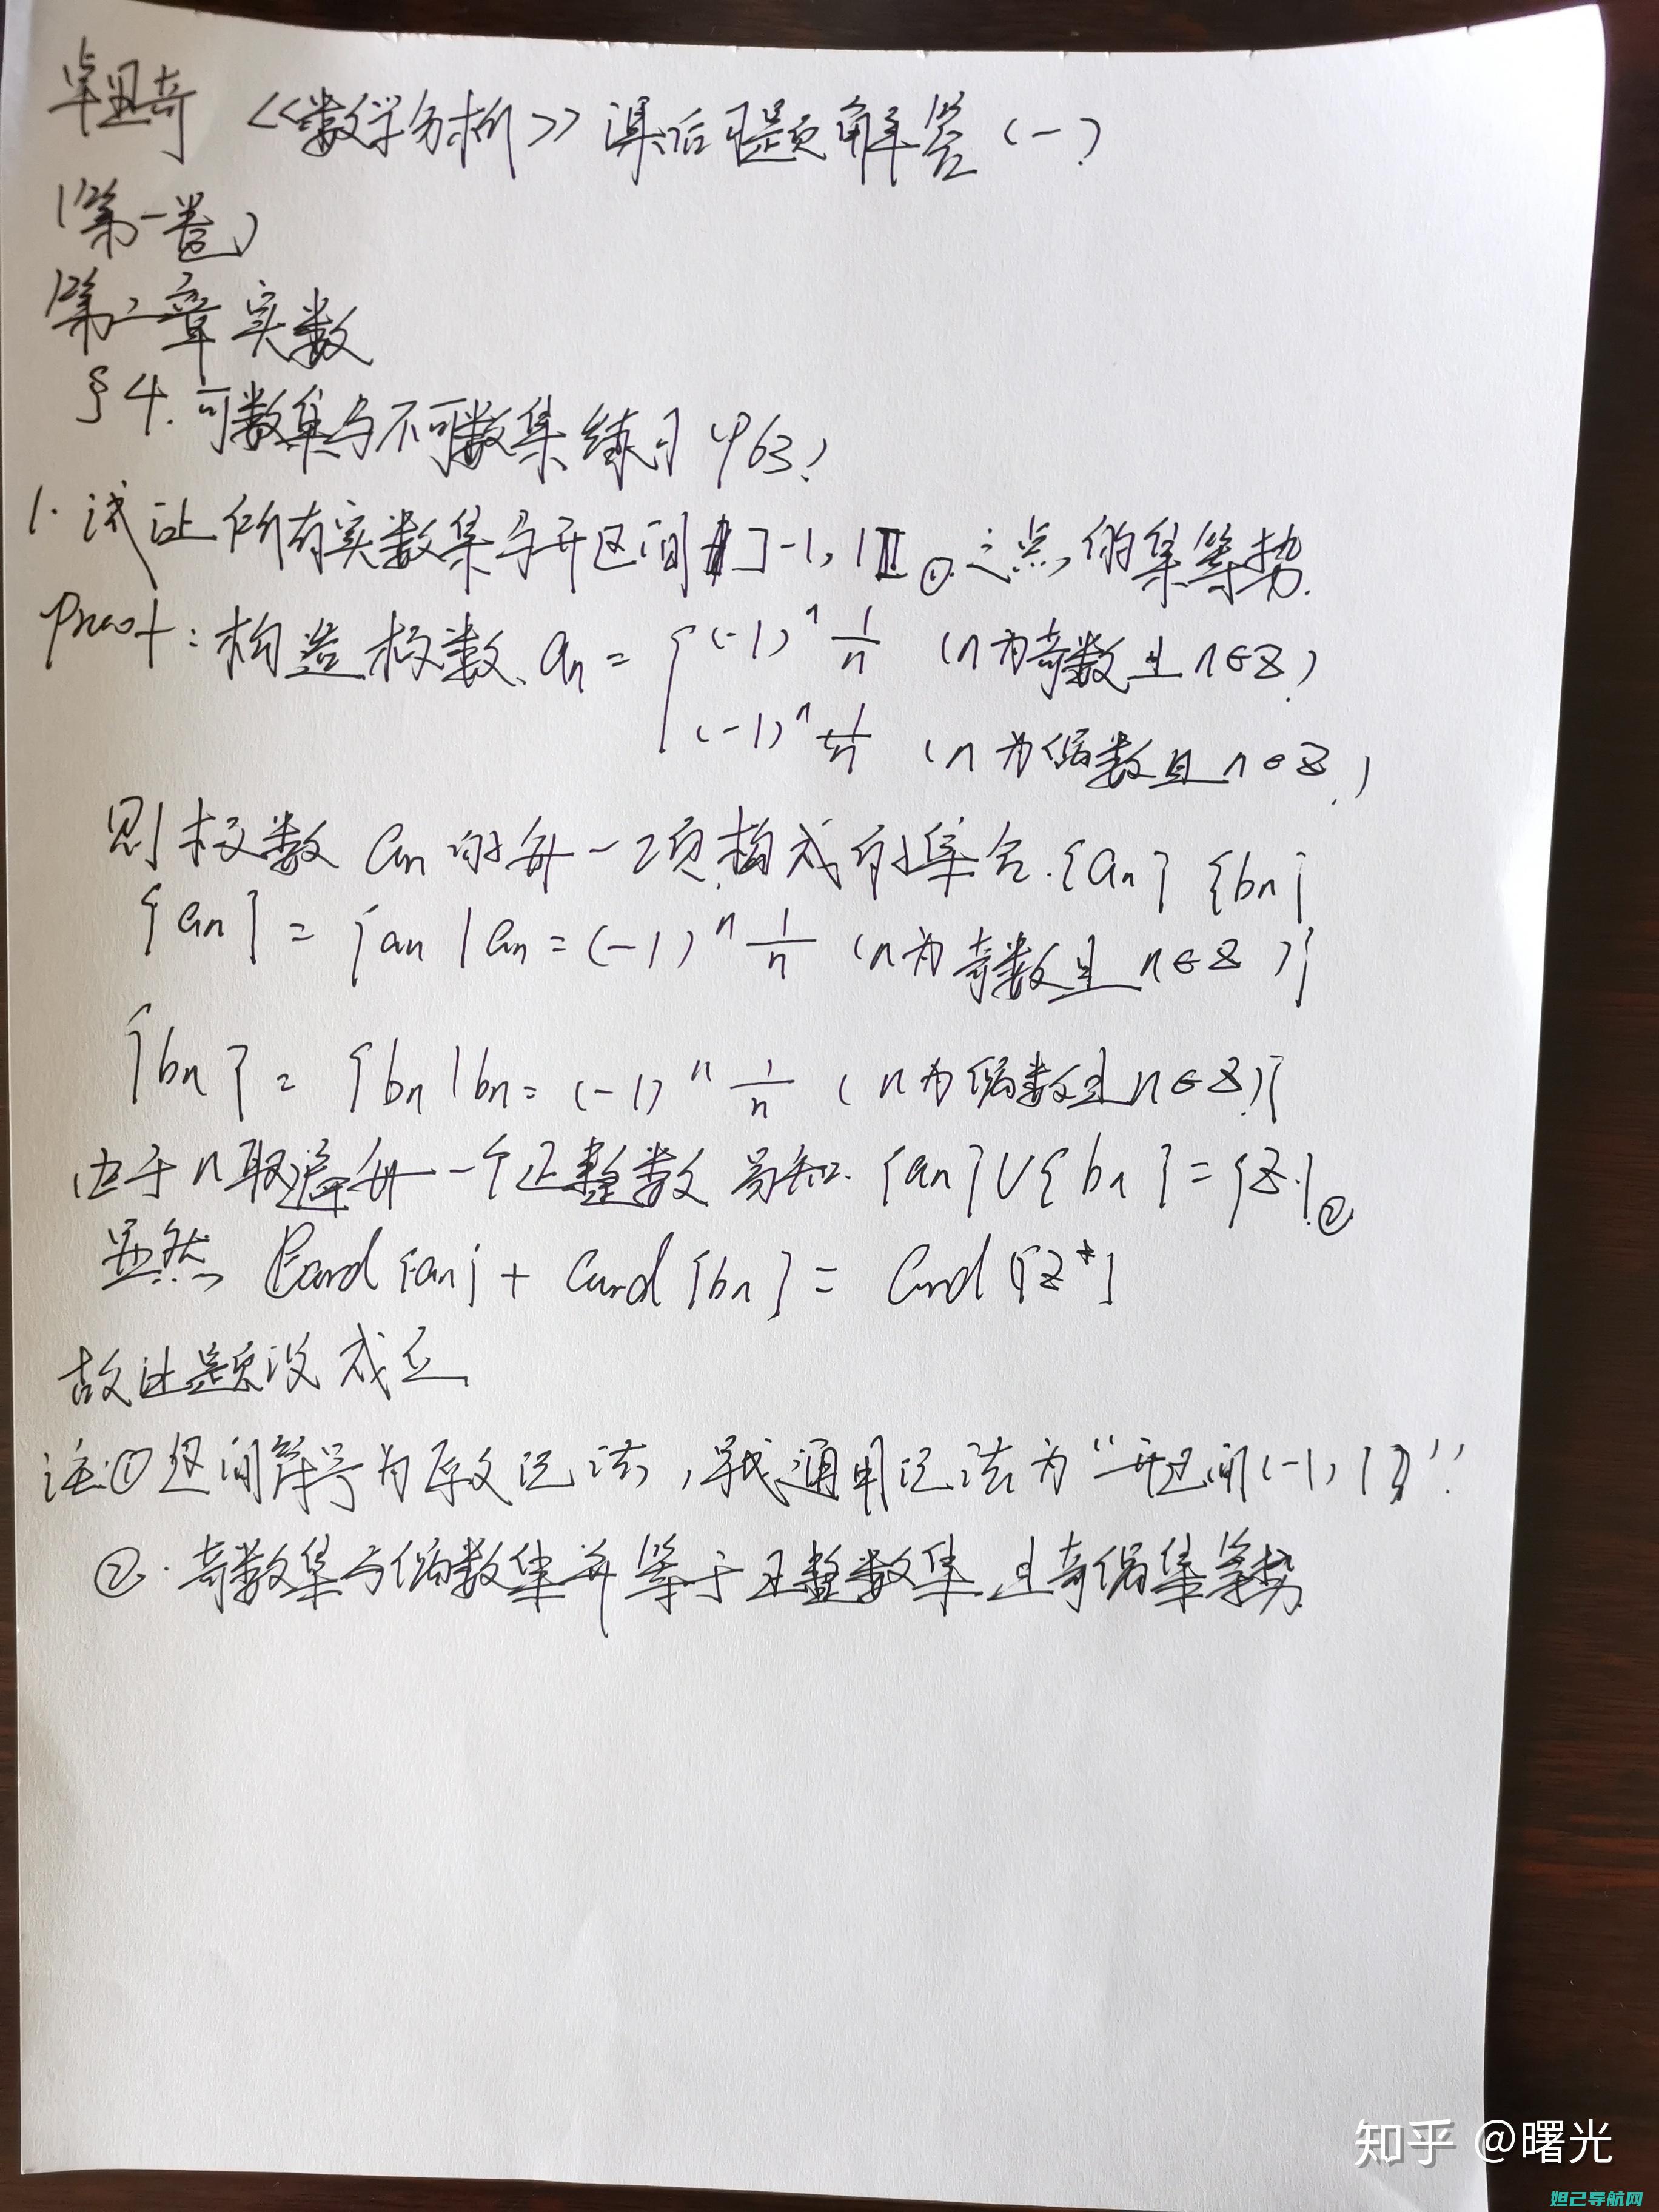 卓里奇 <<数学分析>> 课后习题解答(一)
(第一卷)
第二章实数
§4.可数集与不可数集练习 P63)
1.试证所有实数集与开区间]-1,1[①之点的集等势.
Proof:构造极数 an = { (-1)^n 1/n (n为奇数且n∈Z)
(-1)^n 1/n (n为偶数且n∈Z)
则极数 an 的每一项构成的集合.{an} {bn}
{an} = {an | an = (-1)^n 1/n (n为奇数且n∈Z)}
{bn} = {bn | bn = (-1)^n 1/n (n为偶数且n∈Z)}
由于n取遍每一个正整数 易知.{an}∪{bn}={Z}②
显然, Card{an} + Card{bn} = Card{Z*}
故此题设成立
注:①区间符号为原文记法,我通用记法为“开区间(-1,1)”
②.奇数集与偶数集并等于正整数集,且奇偶集等势.
知乎 @曙光
妲己导航网